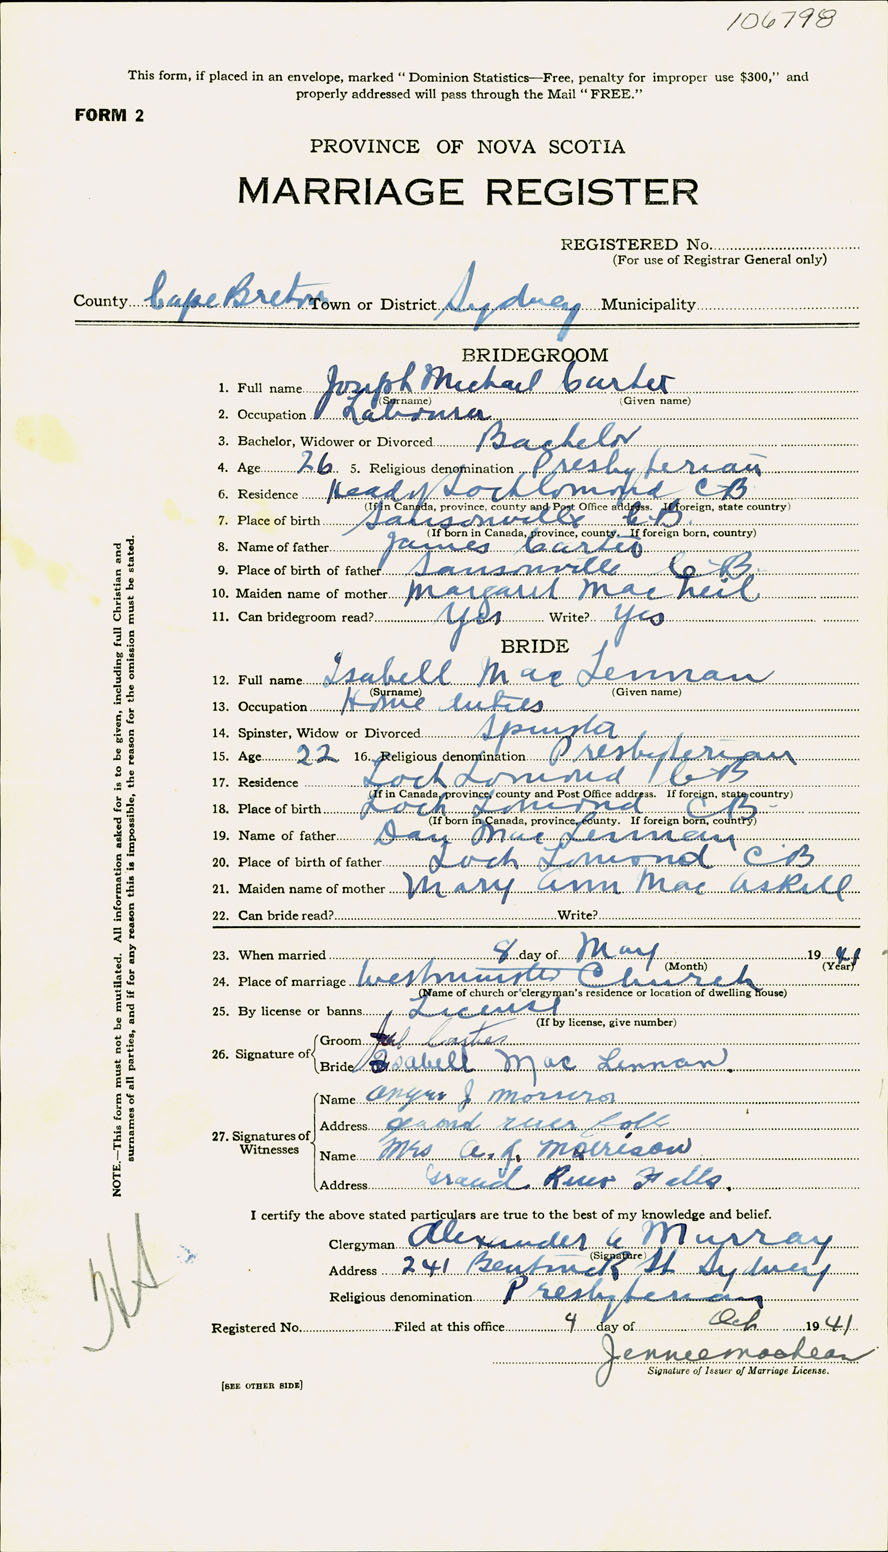 106798
This form, if placed in an envelope, marked "Dominion Statistics—Free, penalty for improper use $300," and
properly addressed will pass through the Mail "FREE."
FORM 2
PROVINCE OF NOVA SCOTIA
MARRIAGE REGISTER
REGISTERED No.
(For use of Registrar General only)
County Cape Breton Town or District Sydney Municipality
BRIDEGROOM
1. Full name Joseph Michael Carter
(Surname) (Given name)
2. Occupation Labourer
3. Bachelor, Widower or Divorced Bachelor
4. Age 26 5. Religious denomination Presbyterian
6. Residence Head of Loch Lomond C B
(If in Canada, province, county and Post Office address. If foreign, state country)
7. Place of birth Sansonville C. B.
(If born in Canada, province, county. If foreign born, country)
8. Name of father James Carter
9. Place of birth of father Sansonville C-B.
10. Maiden name of mother Margaret Mac Neil
11. Can bridegroom read? Yes Write? Yes
BRIDE
12. Full name Isabell Mac Lennan
(Surname) (Given name)
13. Occupation Home Duties
14. Spinster, Widow or Divorced Spinster
15. Age 22 16. Religious denomination Presbyterian
17. Residence Loch Lomond C B
(If in Canada, province, county and Post Office address. If foreign, state country)
18. Place of birth Loch Lomond C B-
(If born in Canada, province, county. If foreign born, country)
19. Name of father Dan Mac Lennan
20. Place of birth of father Loch Lomond C B
21. Maiden name of mother Mary Ann Mac Askill
22. Can bride read? Write?
23. When married 8 day of May 1941
(Month) (Year)
24. Place of marriage Westminster Church
(Name of church or clergyman's residence or location of dwelling house)
25. By license or banns License
(If by license, give number)
26. Signature of
Groom Carter
Bride Isabell Mac Lennan.
27. Signatures of Witnesses
Name Angus J Morrison
Address Grand River
Name Mrs A. J. Morrison
Address Grand River Falls.
I certify the above stated particulars are true to the best of my knowledge and belief.
Clergyman Alexander A Murray
(Signature)
Address 241 Bentinck St Sydney
Religious denomination Presbyterian
Registered No. Filed at this office 9 day of Oct 1941
Signature of Issuer of Marriage License.
[SEE OTHER SIDE]
NOTE.—This form must not be mutilated. All information asked for is to be given, including full Christian and
surnames of all parties, and if for any reason this is impossible, the reason for the omission must be stated.